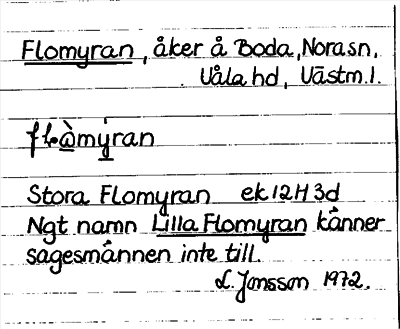 Flomyran, åker å Boda, Nora sn,
Våla hd, Västm. l.
flɷ̀mýran
Stora Flomyran ek 12H 3d
Ngt namn Lilla Flomyran känner
sagesmännen inte till.
L. Jonsson 1972.